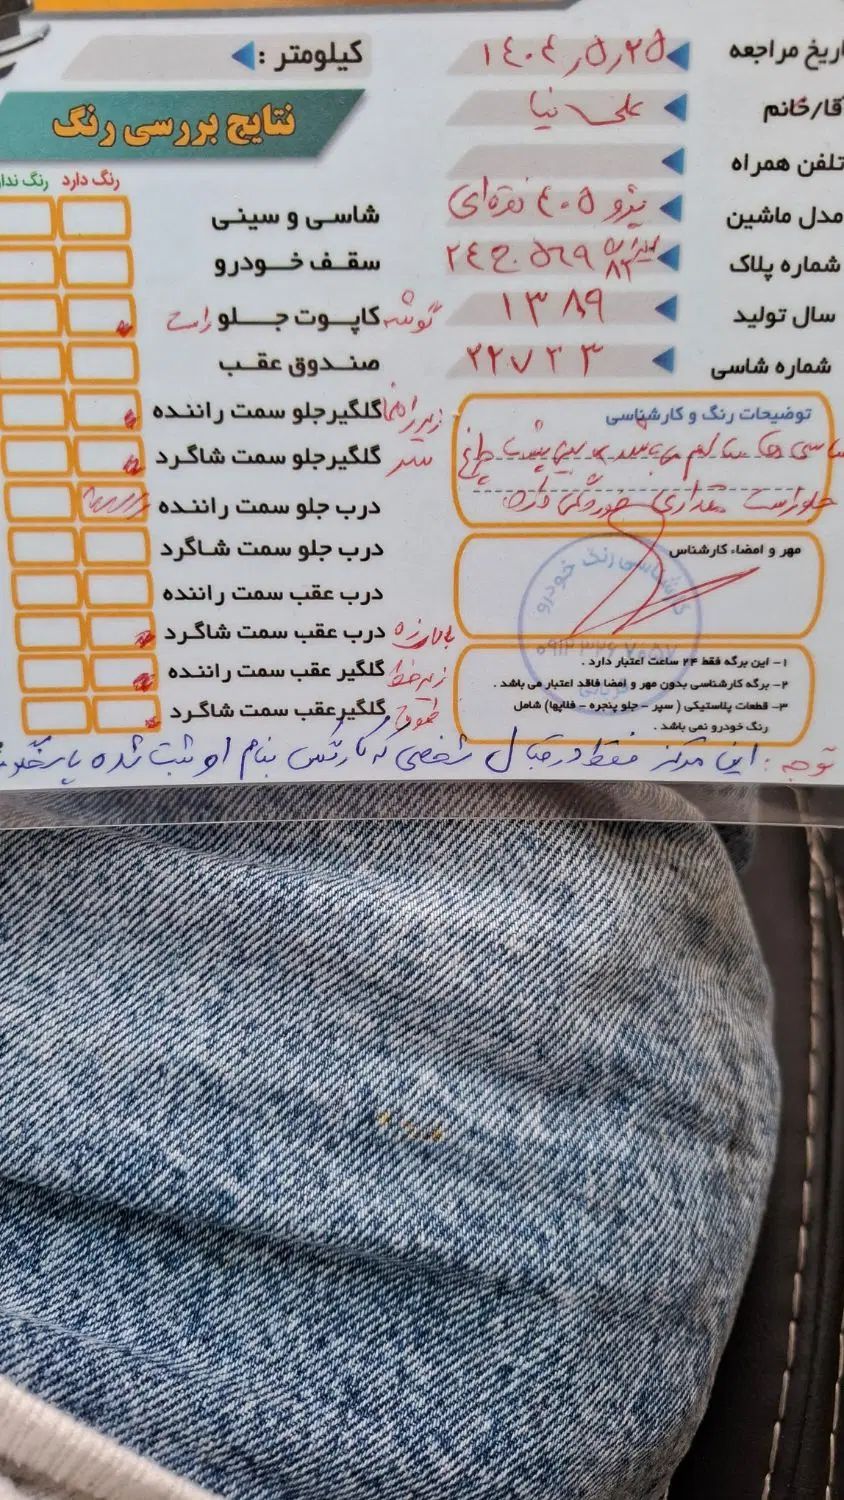 تاریخ مراجعه ۱۴۰۴٫۵٫۲۵
کیلومتر :
آقا/خانم علی نیا
تلفن همراه
مدل ماشین پژو ۴۰۵ نقره‌ای
شماره پلاک ایران ۸۲ ۵۶۹ ج ۲۴
سال تولید ۱۳۸۹
شماره شاسی ۲۲۷۳۳
توضیحات رنگ و کارشناسی
شاسی ها سالم می باشد سینی پشت چراغ
جلو راست مقداری خوردگی دارد
مهر و امضاء کارشناس
کارشناسی رنگ خودرو
۱- این برگه فقط ۲۴ ساعت اعتبار دارد .
۲- برگه کارشناسی بدون مهر و امضا فاقد اعتبار می باشد .
۳- قطعات پلاستیکی ( سپر - جلو پنجره - فلاپها) شامل
رنگ خودرو نمی باشد .
نتایج بررسی رنگ
رنگ دارد رنگ ندا
شاسی و سینی
سقف خودرو
کاپوت جلو گوشه راست
صندوق عقب
گلگیر جلو سمت راننده زیر راهنما
گلگیر جلو سمت شاگرد سر
درب جلو سمت راننده
درب جلو سمت شاگرد
درب عقب سمت راننده
درب عقب سمت شاگرد
گلگیر عقب سمت راننده زیر خط
گلگیر عقب سمت شاگرد ستون
توجه : این مرکز فقط در قبال شخصی که کارتکس بنام او ثبت شده پاسخگو